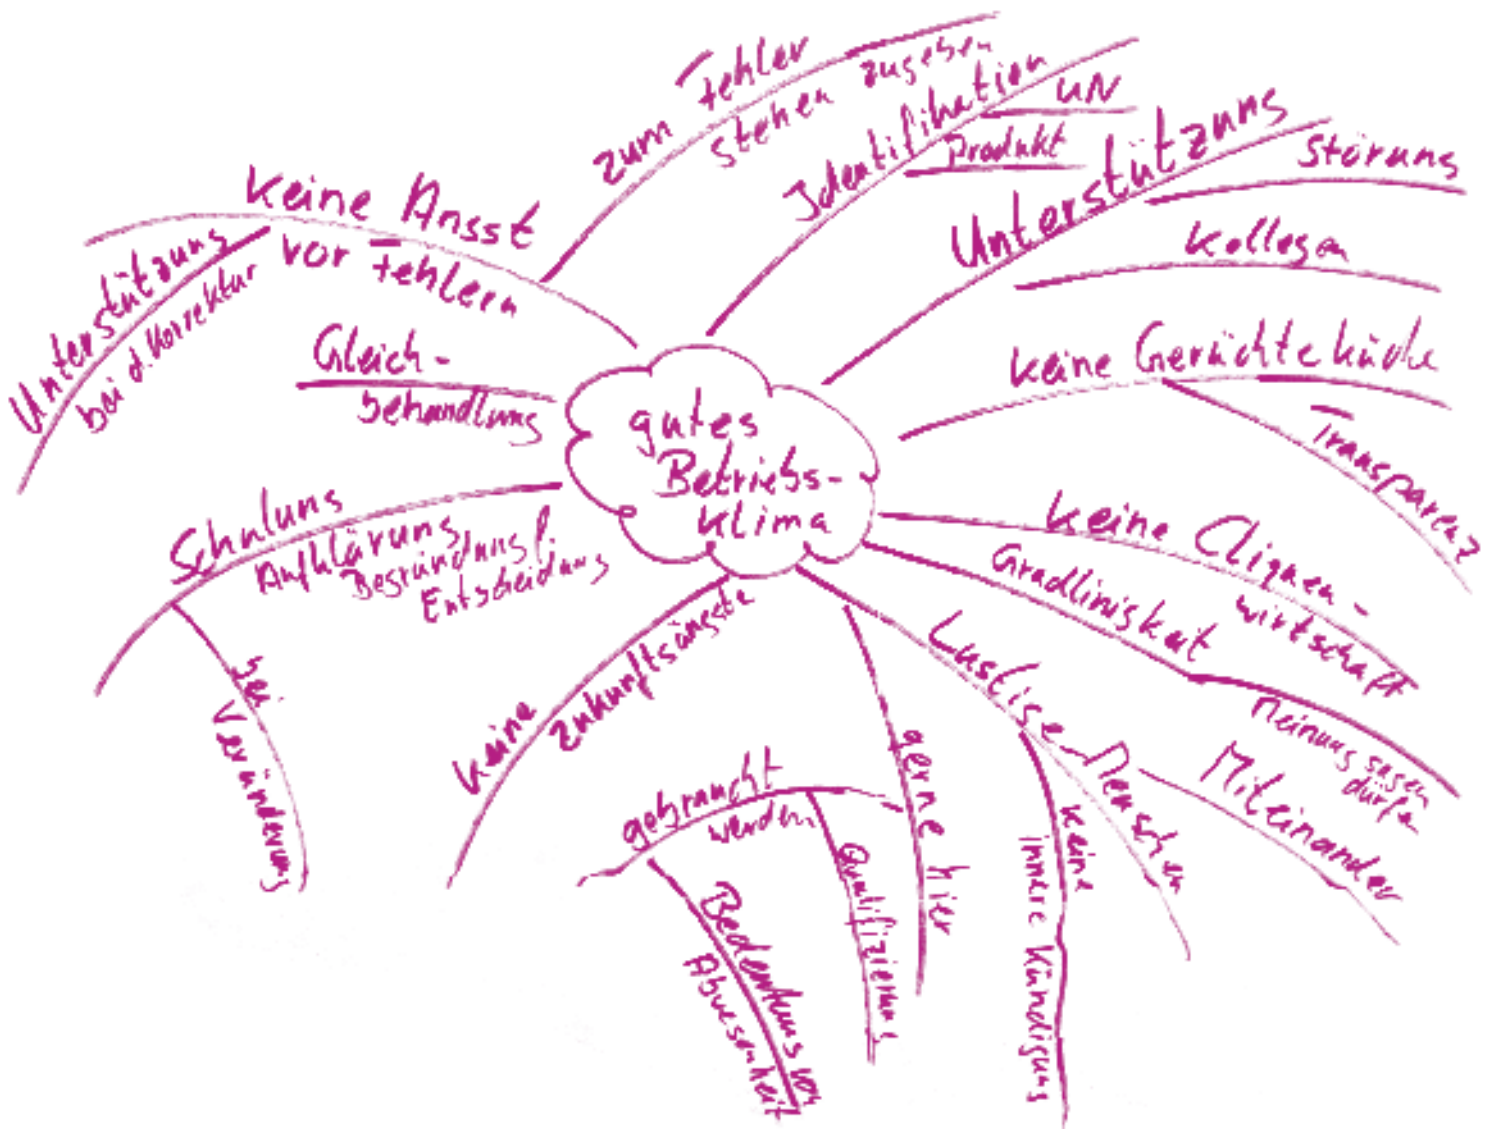 gutes
Betriebs-
Klima
keine Angst
vor Fehlern
Unterstützung
bei d. Korrektur
zum Fehler
stehen zugeben
Identifikation
UN
Produkt
Unterstützung
Störung
Kollegen
keine Gerüchteküche
Transparenz
keine Cliquen-
wirtschaft
Gradlinigkeit
Meinung sagen
dürfen
Lustige Menschen
Miteinander
keine
innere Kündigung
gerne hier
gebraucht
werden
Qualifizierung
Bedeutung von
Abwesenheit
keine
Zukunftsängste
Schulung
Aufklärung
Begründung f.
Entscheidung
bei
Veränderung
Gleich-
behandlung